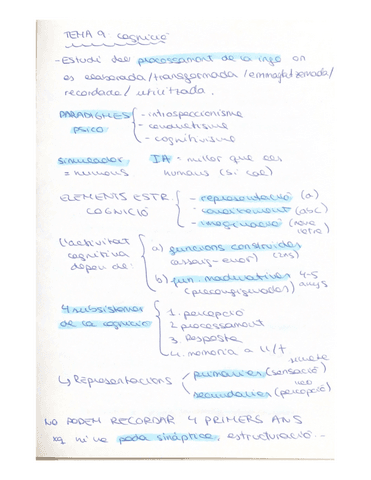 TEMA 9 cognició
- Estudi del processament de la info on
es elaborada/transformada/emmagatzemada/
recordada/utilitzada.
PARADIGMES - introspeccionisme
PSICO - conductisme
- cognitivisme
simulador IA - millor que els
= humans humans (si cal)
ELEMENTS ESTR. - representació (a)
COGNICIÓ - coneixement (abc)
- imaginació (nova lletra)
L'activitat a) funcions construïdes
cognitiva (assaig-error)
depen de: b) fun. maduratives 4-5
(preconfigurades) anys
4 subsistemes 1. percepció
de la cognició 2 processament
3. Resposta
4. memoria a ll/t
↳ Representacions primaries (sensació)
secundaries (percepció)
NO PODEM RECORDAR 4 PRIMERS ANS
xq hi ha poda sináptica, estructuració...